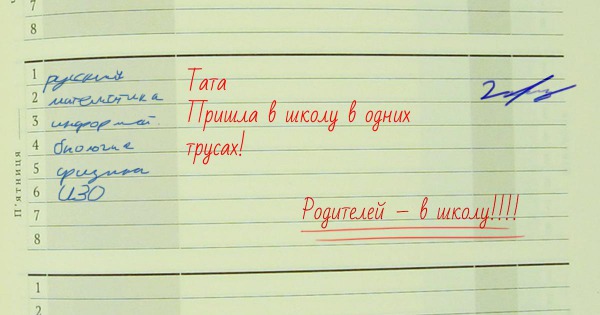 7
8
П'ятниця
1 русский
2 математика
3 информат.
4 биология
5 физика
6 ИЗО
7
8
Тата
Пришла в школу в одних
трусах!
Родителей – в школу!!!!
1
2